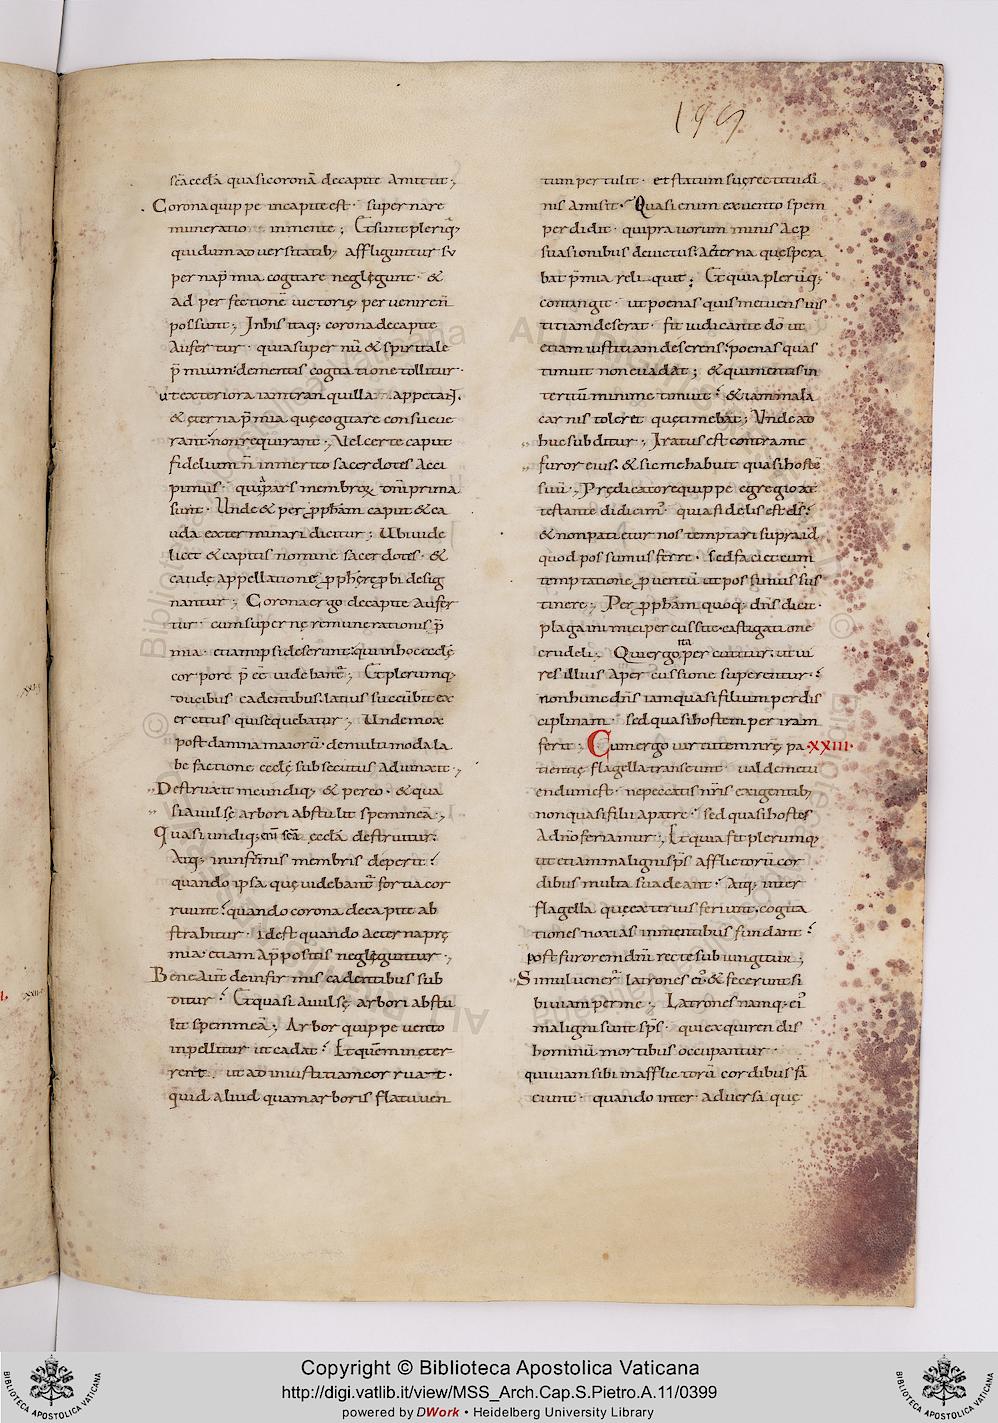 199
sc̄a eccl̄a quasi coronā de capite Amittit ;
Corona quippe in capite est · superna re
muneratio in mente ; Et sunt pleriq;
qui dum adversitatib; affliguntur su
perna p̄mia cogitare neglegunt · &
ad perfectionē victorię pervenire n̄
possunt ; In his itaq; corona de capite
Aufertur · quia supernū & spiritale
p̄mium de mentis cogitatione tollitur ·
ut exteriora iam tranquilla appetant
& ęterna p̄mia quę cogitare consueve
rant non requirant ; Vel certe caput
fidelium n̄ inmerito sacerdotes Acci
pimus · qui pars membroꝝ dn̄i prima
sunt · Unde & per ꝓph̄am caput & ca
uda exterminari dicitur ; Ubi vide
licet & capitis nomine sacerdotes · &
caudę appellatione ꝓph̄ę reprobi desig
nantur ; Corona ergo de capite Aufer
tur · cum supernę remunerationis p̄
mia · etiam ipsi deserunt qui in hoc ecclę
corpore p̄ee videbant̄ ; Et plerumq;
ducibus cadentibus latius succūbit ex
ercitus qui sequebatur ; Unde mox
post damna maiorū de multimoda la
befactione ecclę subsecutus adiunxit ;
Destruxit me undiq; & pereo · & qua
si avulsę arbori abstulit spem meā ;
Quasi undiq; eni sc̄a eccl̄a destruitur
Atq; in infirmis membris deperit
quando ipsa quę videbant̄ fortia cor
ruunt quando corona de capite ab
strahitur · id est quando Aeterna prę
mia etiam A p̄positis negleguntur ;
Bene Aut̄ de infirmis cadentibus sub
ditur Et quasi Avulsę arbori abstu
lit spem meā ; Arbor quippe vento
inpellitur ut cadat Et quēm in eter
rent ut ad iniustitiam corruat ·
quid aliud quam arboris flatu ven
tum pertulit · et statum suę rectitudi
nis Amisit · Quasi enim ex vento spem
perdidit · qui pravorum minis Ac per
suasionibus devictus Aeterna quę spera
bat p̄mia reliquit ; Et quia plerūq;
contingit · ut poenas quis metuens ius
titiam deserat · fit iudicante dō ut
etiam iustitiam deserens poenas quas
timuit non evadat ; & qui mentis in
teritū minime timuit & iam mala
carnis toleret quę timebat ; Unde ad
huc subditur ; Iratus est contra me
furor eius & sic me habuit quasi hostē
suū ; Prędicatore quippe egregio at
testante didicim̄ · quia fidelis est ds̄
& non patietur nos temptari supra id
quod possumus ferre · sed faciet cum
temptatione ꝓventū ut possimus sus
tinere ; Per ꝓph̄am quoq; dn̄s dicit ·
plaga inimici percussi te castigatione
crudeli ; Qui ergo ita percutitur ut vi
res illius A percussione superentur ·
non hunc dn̄s iam quasi filium per dis
ciplinam · sed quasi hostem per iram
ferit ; Cum ergo virtutem nr̄ę pa · XXIII ·
tientię flagella transeunt · valde metu
endum est · ne peccatis nr̄is exigentib;
non quasi filii A patre · sed quasi hostes
A dn̄o feriamur ; Et quia fit plerumq;
ut etiam maligni sp̄s afflictorū cor
dibus multa suadeant · Atq; inter
flagella quę exterius feriunt cogita
tiones noxias in mentibus fundant
post furorem dn̄i recte subiungitur ;
Simul vener̄ latrones ei' & fecerunt si
bi viam per me ; Latrones namq; ei'
maligni sunt sp̄s · qui exquirendis
hominū mortibus occupantur ·
qui viam sibi in afflictorū cordibus fa
ciunt · quando inter adversa quę
Copyright © Biblioteca Apostolica Vaticana
http://digi.vatlib.it/view/MSS_Arch.Cap.S.Pietro.A.11/0399
powered by DWork • Heidelberg University Library
BIBLIOTECA APOSTOLICA VATICANA
BIBLIOTECA APOSTOLICA VATICANA